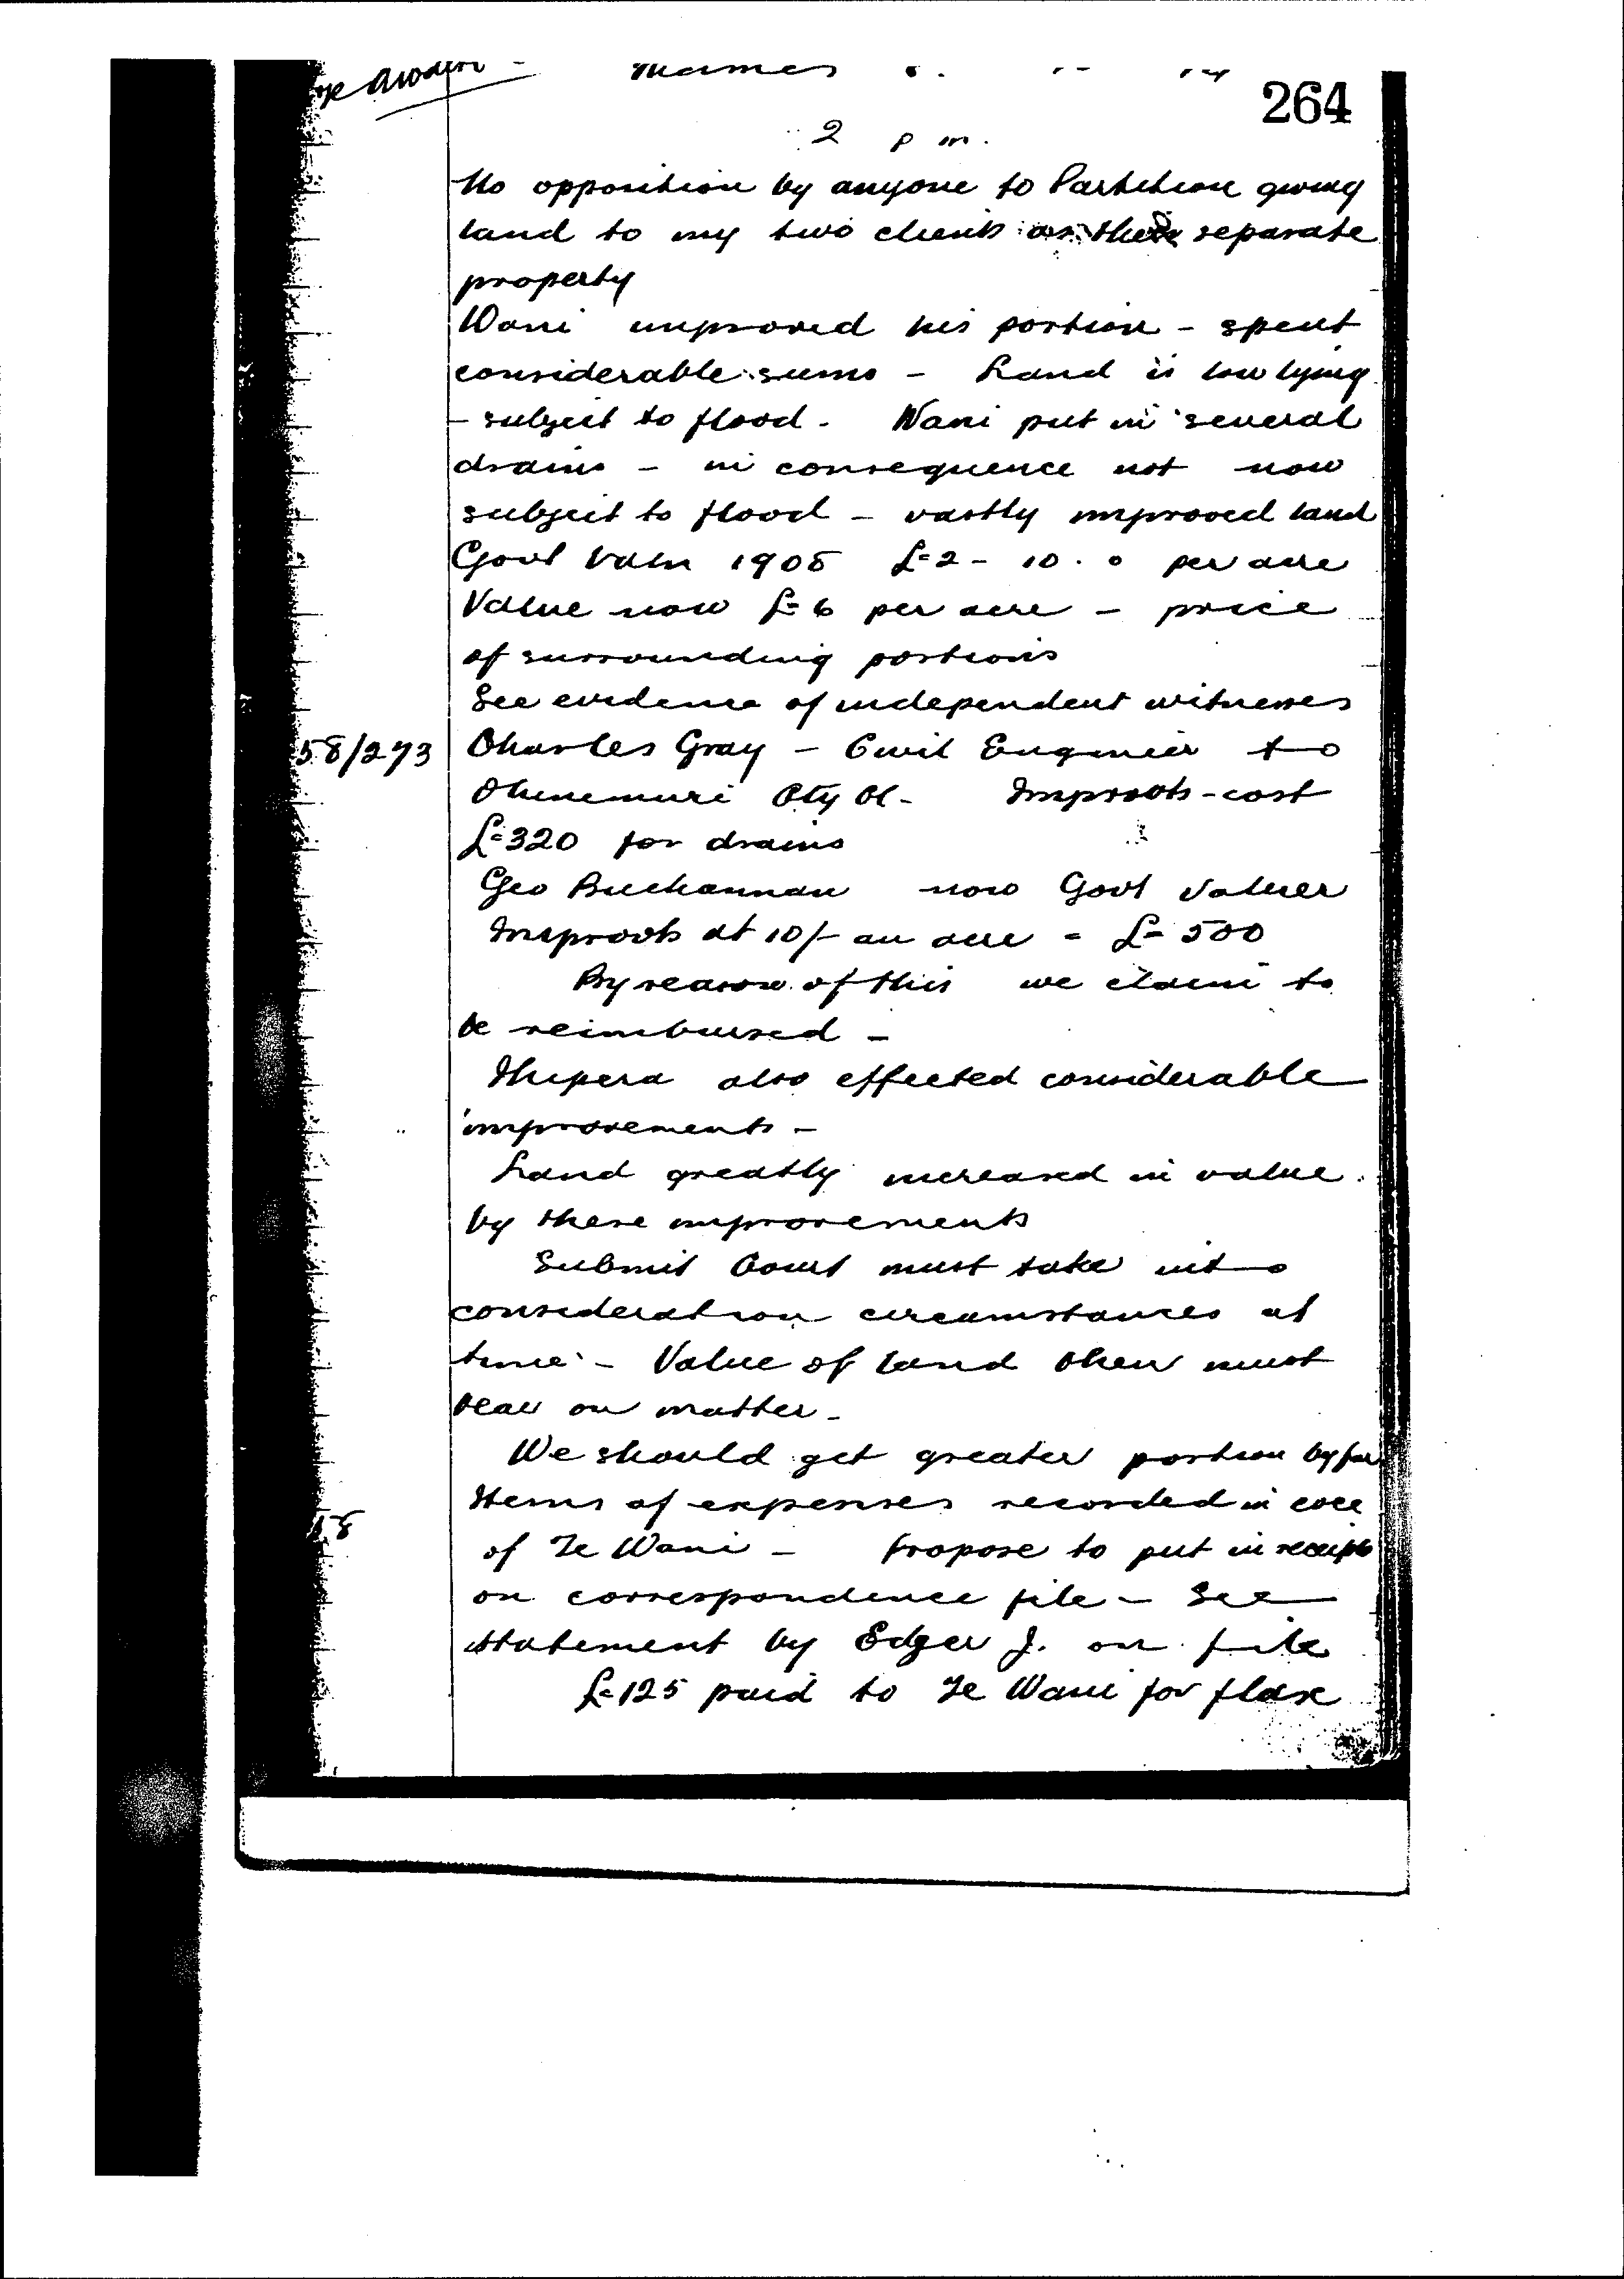 264
2 p m.
No opposition by anyone to Partition giving
land to my two clients as their separate
property
Wani improved his portion - spent
considerable sums - Land is low lying
- subject to flood. Wani put in several
drains - in consequence not now
subject to flood - vastly improved land
Govt Valn 1908 £2 - 10 . 0 per acre
Value now £6 per acre - price
of surrounding portions
See evidence of independent witnesses
58/273 Charles Gray - Civil Engineer to
Ohinemuri Cty Cl - Improvts - cost
£320 for drains
Geo Buchannan now Govt Valuer
Improvts at 10/- an acre = £500
By reason of this we claim to
be reimbursed -
also effected considerable
improvements -
Land greatly increased in value
by these improvements
Submit Court must take into
consideration circumstances at
time - Value of land then must
bear on matter -
We should get greater portion by far
Items of expenses recorded in
of Te Wani - Propose to put in receipts
on correspondence file - See
statement by Edger J. on file
£125 paid to Te Wani for flax